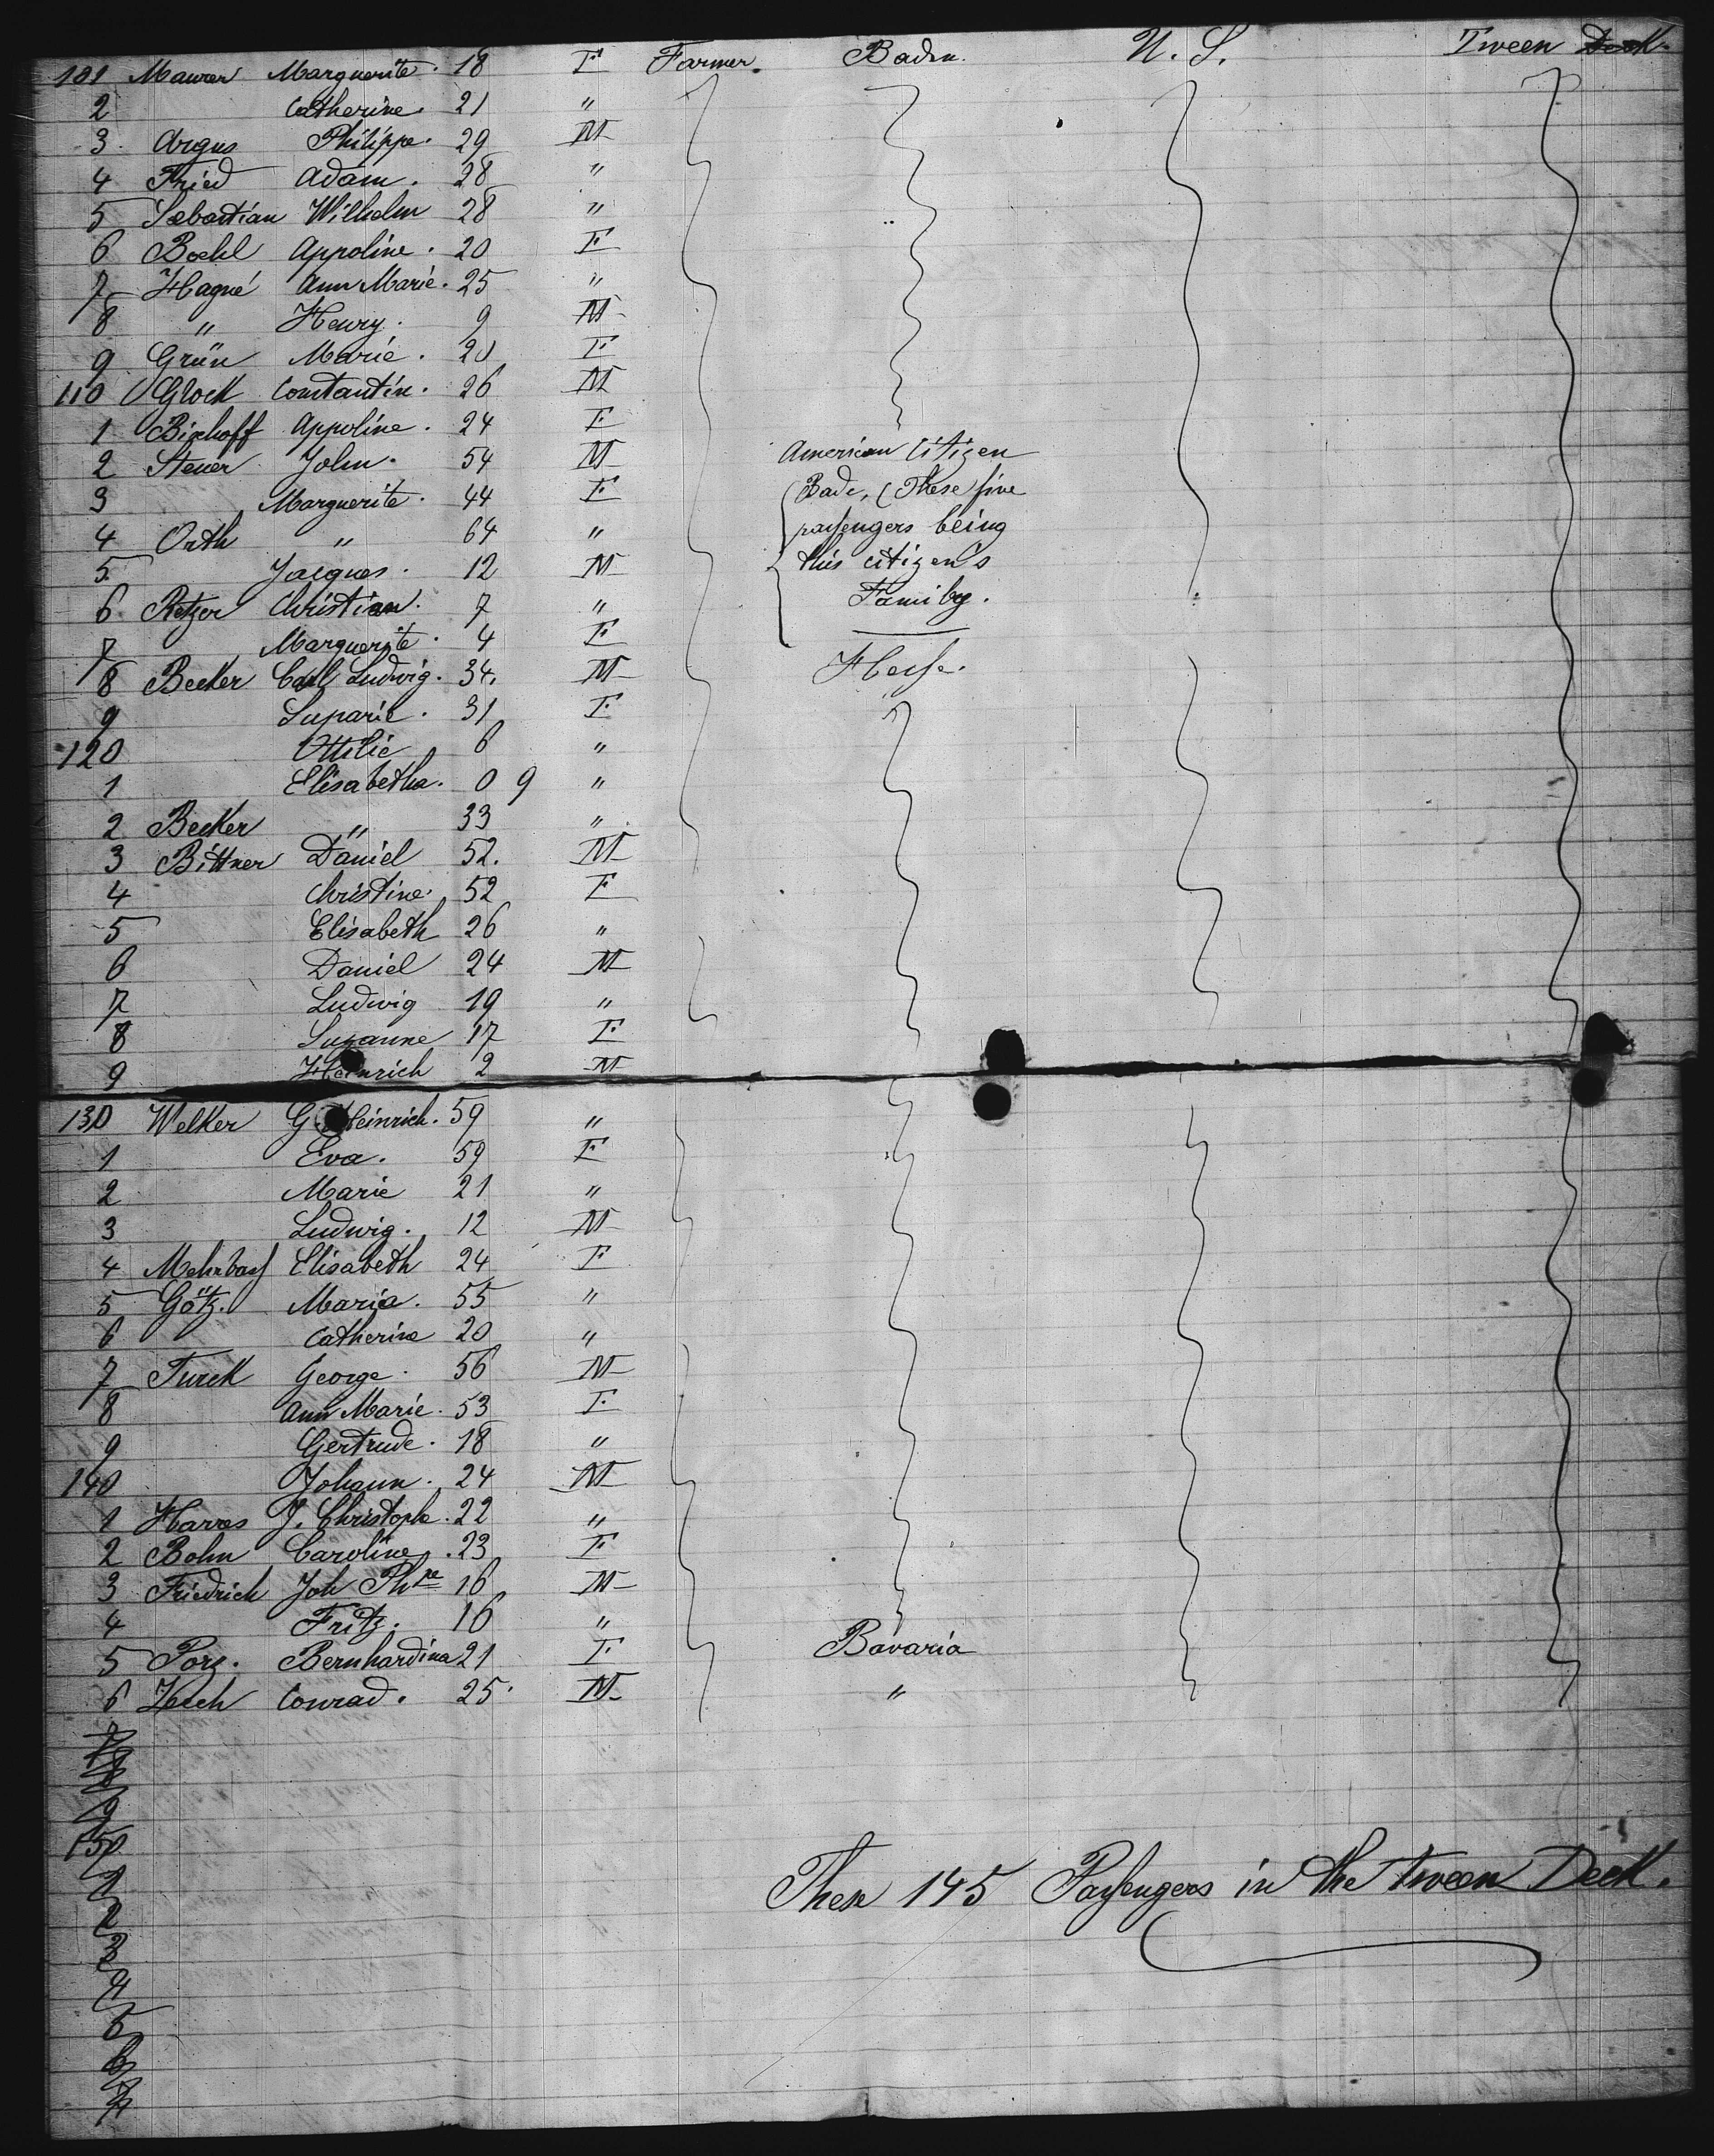 101 Maurer Marguerite. 18 F Farmer. Baden. U. S. Tween Deck.
2 Catherine. 21 "
3. Argus Philippe. 29 M
4 Fried Adam. 28 "
5 Sebastian Wilhelm 28 "
6 Boehl Appoline. 20 F
7 Hagné Ann Marie. 25 "
8 " Henry. 9 M
9 Grün Marie. 20 F
110 Glock Constantin. 26 M
1 Bischoff Appoline. 24 F
2 Steuer John. 54 M American Citizen
3 Marguerite. 44 F Bade, (These five
4 Orth " 64 " passengers being
5 Jacques. 12 M this citizen's
6 Retzer Christian. 7 " Family.
7 Marguerite. 4 F
8 Becker Carl Ludwig. 34. M Hesse.
9 31 F
120 Ottilie 6 "
1 Elisabetha. 0 9 "
2 Becker " 33 "
3 Bittner Daniel 52. M
4 Christine. 52 F
5 Elisabeth 26 "
6 Daniel 24 M
7 Ludwig 19 "
8 Suzanne 17 F
9 Heinrich 2 M
130 Welker G Heinrich. 59 "
1 Eva. 59 F
2 Marie 21 "
3 Ludwig. 12 M
4 Elisabeth 24 F
5 Götz. Maria. 55 "
6 Catherine 20 "
7 Turck George. 56 M
8 Ann Marie. 53 F
9 Gertrude. 18 "
140 Johann. 24 M
1 Harres J. Christoph. 22 "
2 Bohn Caroline. 23 F
3 Friedrich Joh Phpe 16 M
4 Fritz. 16 "
5 Porz. Bernhardina 21 F Bavaria
6 Zech Conrad. 25. M "
7
8
9
150
1
2
3
4
5
6
7
These 145 Passengers in the Tween Deck.